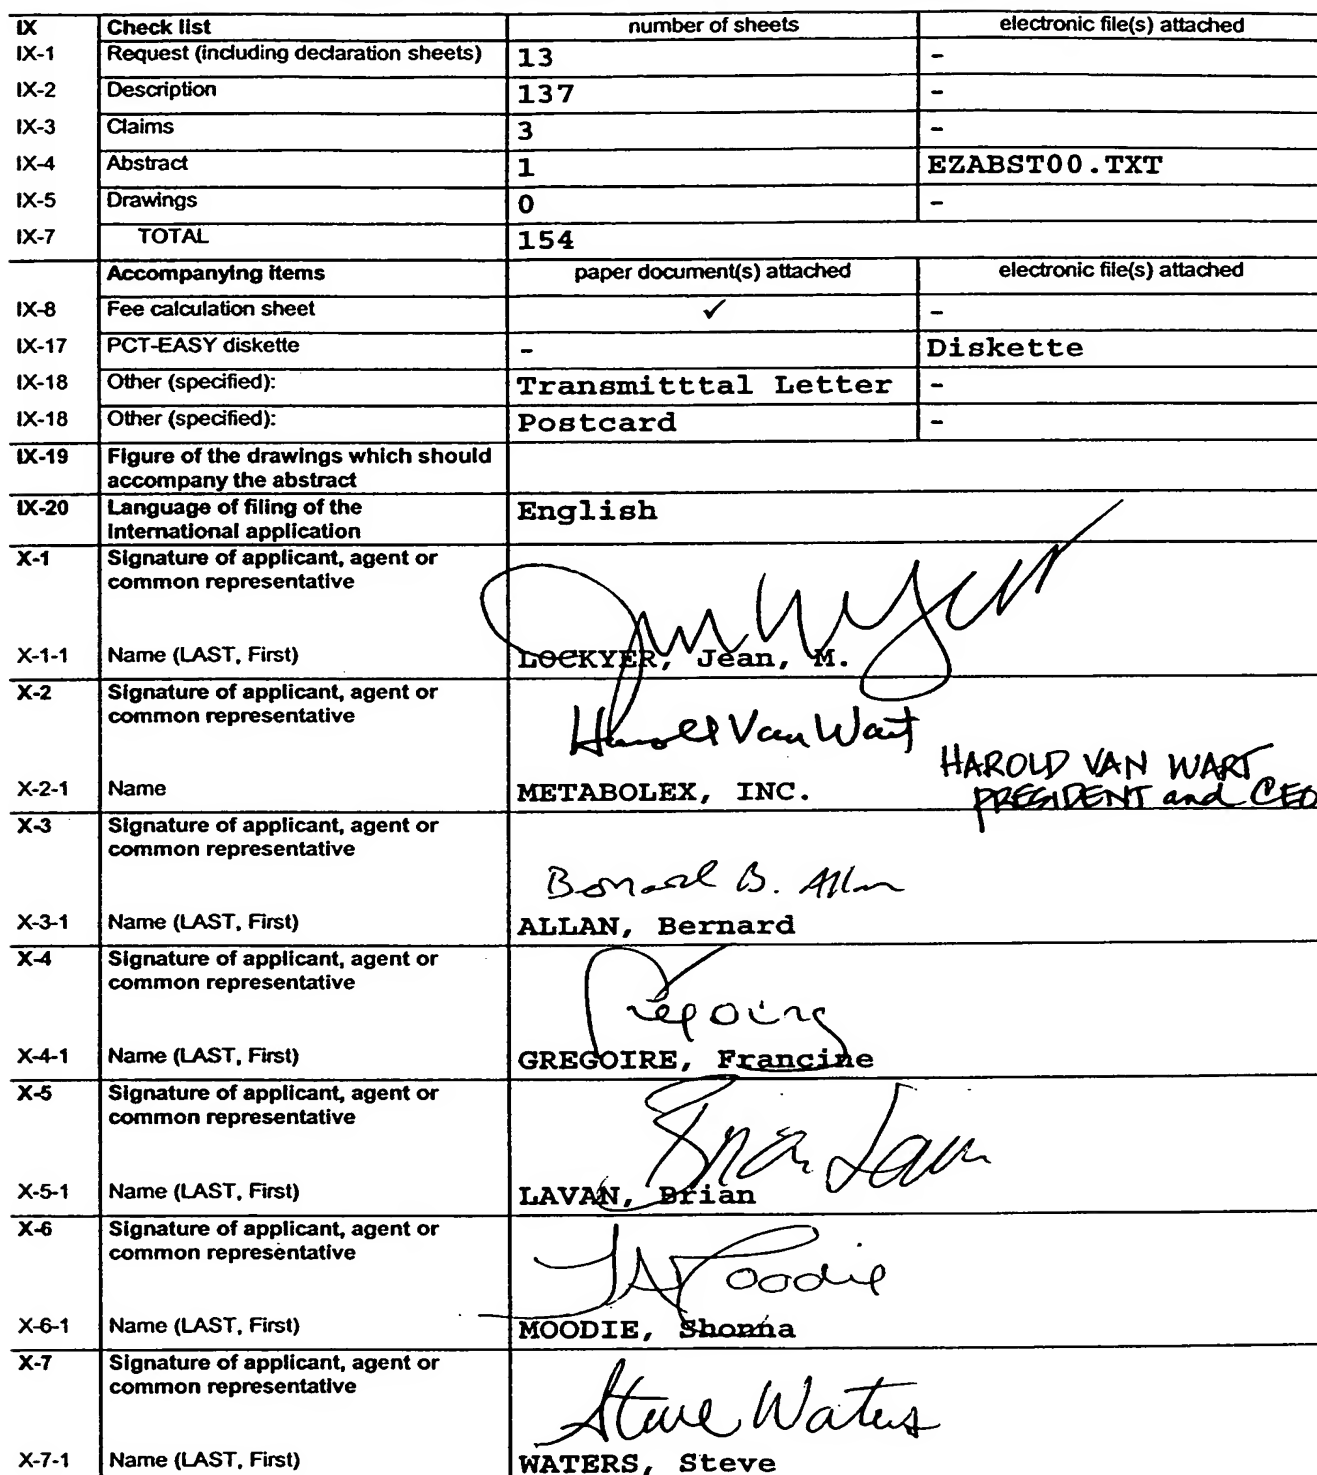 IX Check list number of sheets electronic file(s) attached
IX-1 Request (including declaration sheets) 13 -
IX-2 Description 137 -
IX-3 Claims 3 -
IX-4 Abstract 1 EZABST00.TXT
IX-5 Drawings 0 -
IX-7 TOTAL 154
Accompanying items paper document(s) attached electronic file(s) attached
IX-8 Fee calculation sheet ✓ -
IX-17 PCT-EASY diskette - Diskette
IX-18 Other (specified): Transmitttal Letter -
IX-18 Other (specified): Postcard -
IX-19 Figure of the drawings which should
accompany the abstract
IX-20 Language of filing of the English
international application
X-1 Signature of applicant, agent or
common representative
X-1-1 Name (LAST, First) LOCKYER, Jean, M.
X-2 Signature of applicant, agent or
common representative
Harold Van Wart
HAROLD VAN WART
X-2-1 Name METABOLEX, INC. PRESIDENT and CEO
X-3 Signature of applicant, agent or
common representative
Bernard B. Allan
X-3-1 Name (LAST, First) ALLAN, Bernard
X-4 Signature of applicant, agent or
common representative
X-4-1 Name (LAST, First) GREGOIRE, Francine
X-5 Signature of applicant, agent or
common representative
Brian Lavan
X-5-1 Name (LAST, First) LAVAN, Brian
X-6 Signature of applicant, agent or
common representative
Moodie
X-6-1 Name (LAST, First) MOODIE, Shonna
X-7 Signature of applicant, agent or
common representative
Steve Waters
X-7-1 Name (LAST, First) WATERS, Steve